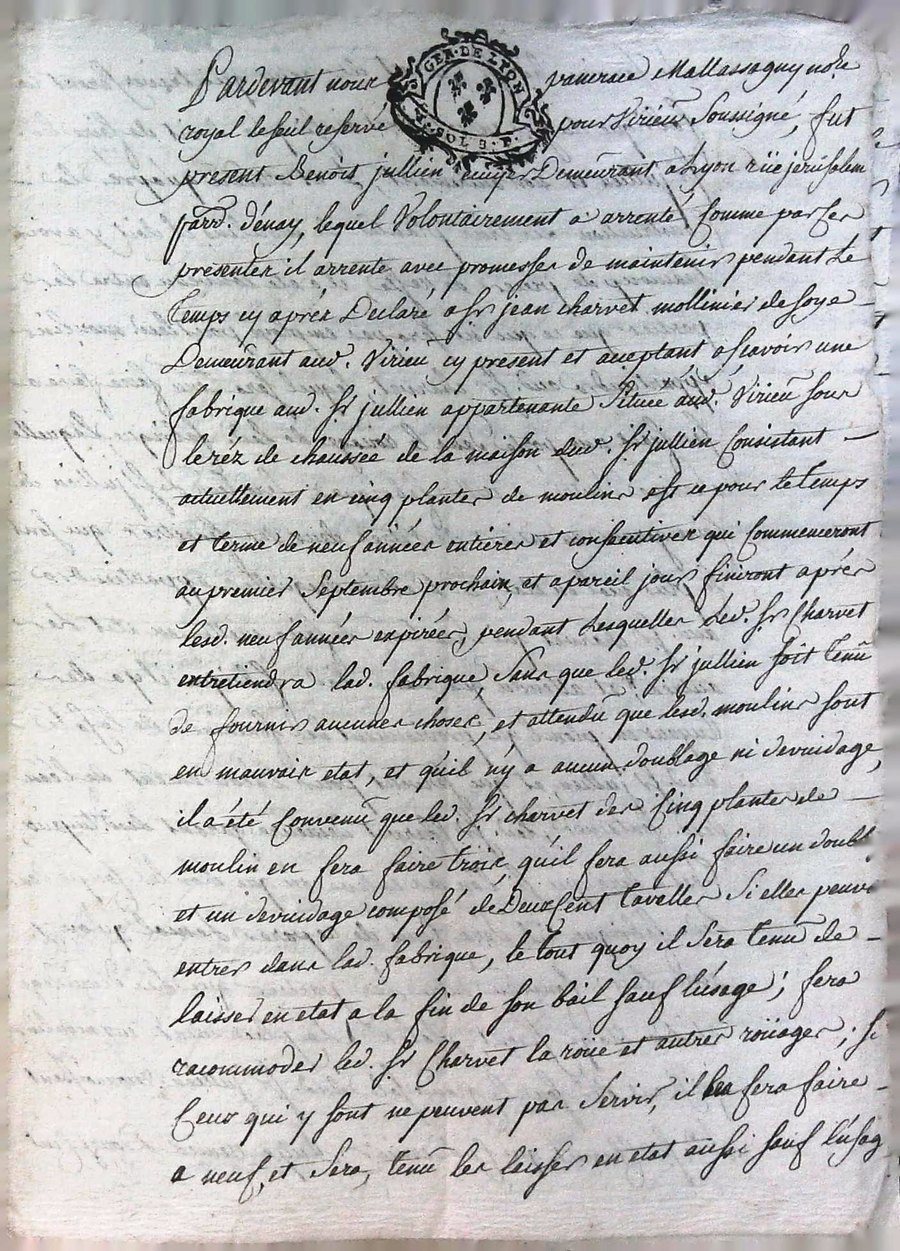 GEN. DE LYON
SOL 8. D.
Pardevant nous Mallassagny no.re
royal le seul reservé pour Virieû Soussigné, fut
présent Benoit jullien ecuyer Demeurant a Lyon rüe jerusalem
parr. d'énay, lequel Volontairement a arrenté Comme par ces
presentes il arrente avec promesses de maintenir pendant Le
Temps cy aprés Declaré a Sr jean charvet mollinier de soye
Demeurant aud. Virieû cy present et aceptant ascavoir une
fabrique aud. Sr jullien appartenante Située aud. Virieû sous
le réz de chaussée de la maison dud. Sr jullien Consistant
actuellement en cinq plantes de moulins est ce pour le temps
et terme de neuf années entieres et consecutives qui Commenceront
au premier Septembre prochain, et a pareil jour finiront aprés
lesd. neuf années expirées, pendant Lesquelles Led. Sr Charvet
entretiendra lad. fabrique, Sans que led. Sr jullien soit tenû
de fournir aucunes choses, et attendû que lesd. moulins sont
en mauvais etat, et qu'il n'y a aucun doublage ni devuidage,
il a été Convenû que led. Sr charvet des Cinq plantes de
moulin en fera faire trois, qu'il fera aussi faire un doubl
et un devuidage composé de Deux Cent tavelles Si elles peuve
entrer dans lad. fabrique, le tout quoy il Sera tenû de
laisser en etat a la fin de son bail sauf l'úsage; fera
racommoder led. Sr Charvet la roüe et autres roüages; Si
Ceux qui y sont ne peuvent pas Servir, il les fera faire
a neuf, et Sera, tenû les laisser en etat aussi sauf l'usag